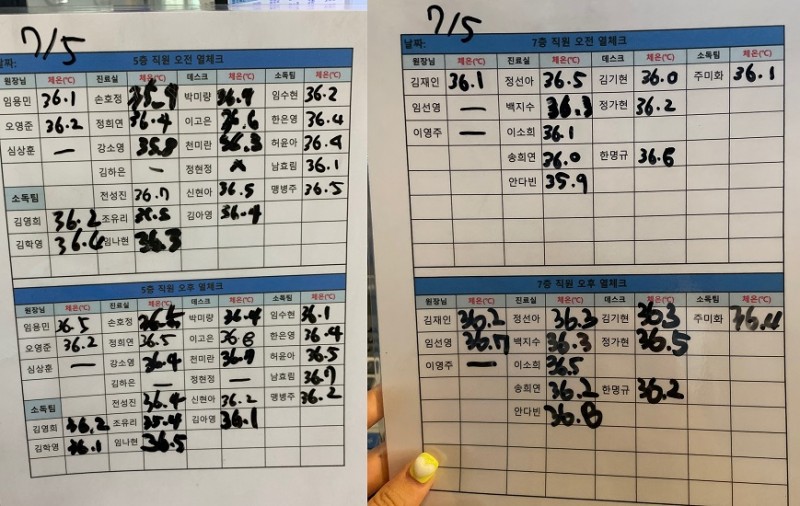 7/5
날짜:
5층 직원 오전 열체크
원장님 체온(℃) 진료실 체온(℃) 데스크 체온(℃) 소독팀 체온(℃)
임용민 36.1 손호정 박미랑 36.9 임수현 36.2
오영준 36.2 정희연 36.4 이고은 36.6 한은영 36.4
심상훈 — 강소영 35.8 천미란 36.3 허윤아 36.9
김하은 — 정현정 남효림 36.1
소독팀 전성진 36.7 신현아 36.5 맹병주 36.5
김영희 36.2 조유리 김아영 36.4
김학영 36.6 임나현 36.3
5층 직원 오후 열체크
원장님 체온(℃) 진료실 체온(℃) 데스크 체온(℃) 소독팀 체온(℃)
임용민 36.5 손호정 박미랑 36.4 임수현 36.1
오영준 36.2 정희연 36.5 이고은 36.8 한은영 36.4
심상훈 — 강소영 36.4 천미란 허윤아 36.5
김하은 — 정현정 — 남효림 36.7
소독팀 전성진 36.4 신현아 36.2 맹병주 36.2
김영희 36.2 조유리 35.4 김아영 36.1
김학영 36.1 임나현 36.5
7/5
날짜:
7층 직원 오전 열체크
원장님 체온(℃) 진료실 체온(℃) 데스크 체온(℃) 소독팀 체온(℃)
김재인 36.1 정선아 36.5 김기현 36.0 주미화 36.1
임선영 — 백지수 36.1 정가현 36.2
이영주 — 이소희 36.1
송희연 36.0 한명규 36.6
안다빈 35.9
7층 직원 오후 열체크
원장님 체온(℃) 진료실 체온(℃) 데스크 체온(℃) 소독팀 체온(℃)
김재인 36.2 정선아 36.3 김기현 36.3 주미화 36.4
임선영 36.7 백지수 36.3 정가현 36.5
이영주 — 이소희 36.5
송희연 36.2 한명규 36.2
안다빈 36.8